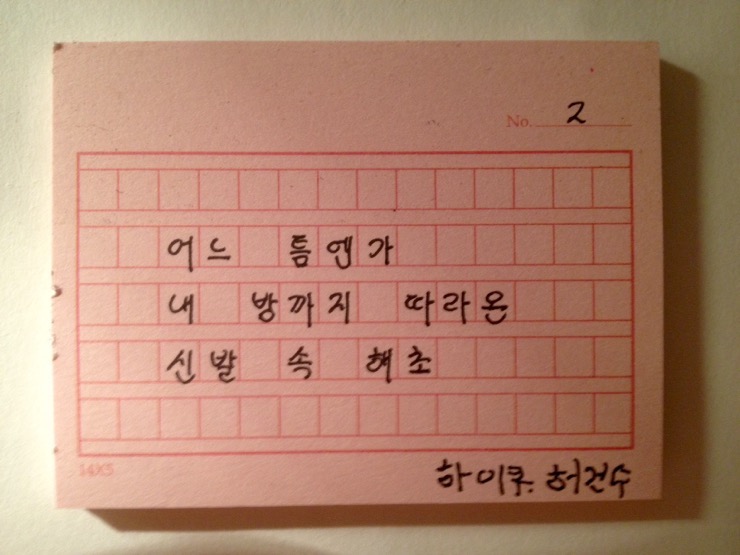 No. 2
어느 틈엔가
내 방까지 따라온
신발 속 해초
14X5
하이쿠. 허건수